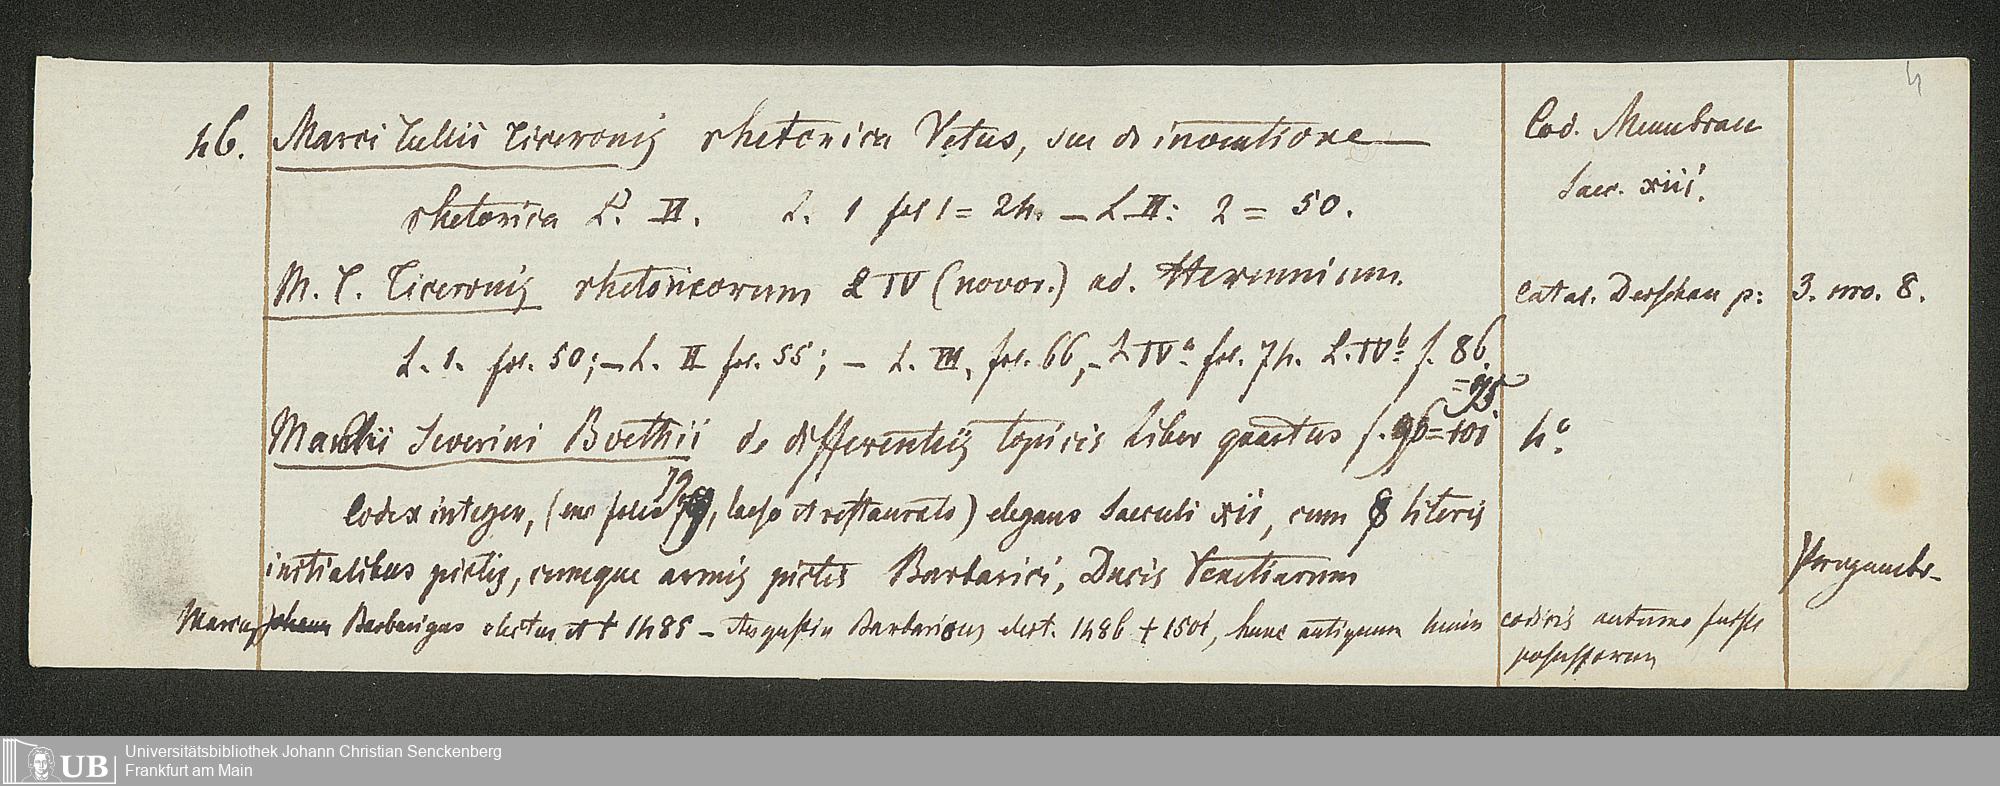 4
46. Marci Tullii Ciceronis rhetorica Vetus, seu de inventione Cod. Membran
rhetorica L. II. L. 1 fol 1 = 24. – L. II: 2 = 50. Saec. xiii.
M. T. Ciceronis rhetoricorum L IV (novor.) ad. Herennium. Catal. Derschau p: 3. nro. 8.
L. 1. fol. 50; – L. II fol. 55; – L. III, fol. 66, – L IVa fol. 74. L. IVb f. 86.
= 95
Manlii Severini Boethii de differentiis topicis Liber quartus f. 96 = 101 4o
Codex integer, (uno folio 79, laeso et restaurato) elegans Saeculi xii, cum 8 literis
initialibus pictis, cumque armis pictis Barbarici, Ducis Venetiarum Pergamebr-
Marcus Johann Barbarigus electus et † 1485 – Augustin Barbaricus elect. 1486 † 1501, hunc antiquum huius codicis autumo fuisse
possessorem
UB
Universitätsbibliothek Johann Christian Senckenberg
Frankfurt am Main